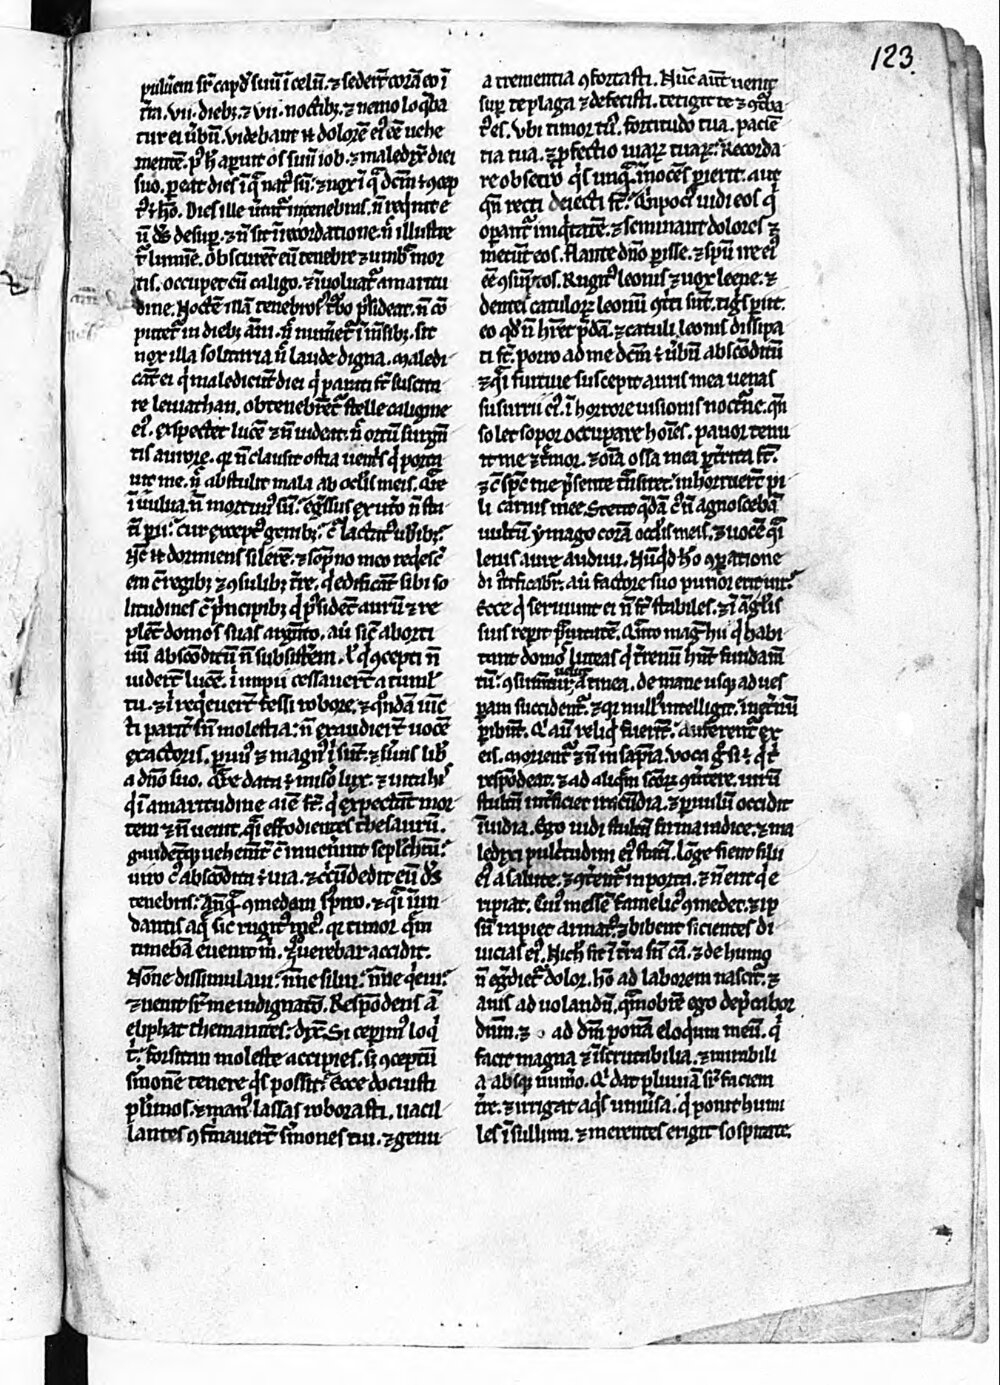 123
puluerem sr̄ capd̓ suū ī celū. ⁊ sedert̄ corā eo ī
t̄ra .vii. dieb; ⁊ vii. noctib; ⁊ nemo loq̄ba
tur ei ūbū. videbant .n. dolorē ei̓ eē uehe
mentē. p̓ h̄ aperuit os suū iob. ⁊ maledixit diei
suo. pereat dies ī q̄ nat̓ sū. ⁊ nox ī q̄ dc̄m ē ↄcep
t̓ ē hō. Dies ille ūtat̓ in tenebras. n̄ reqirat e
ū d̓s desup. ⁊ n̄ sit ī recordatione. n̄ illustre
t̓ lumīe. obscurēt eū tenebre ⁊ umbra mor
tis. occupet eū caligo. ⁊ īuoluat̓ amaritu
dine. Noctē illā tenebros̓ t̓bo p̓sideat. n̄ cō
putet̓ in dieb; anni. n̄ nūmeret̓ ī mensib;. sit
nox illa solitaria n̄ laude digna. maledi
cāt ei q̓ maledicūt diei q̓ parati st̄ suscita
re leuiathan. obtenebrent̓ stelle caligine
ei̓. expectet lucē ⁊ n̄ uideat. n̄ ortū surgēn
tis aurore. qr̄ n̄ clausit ostia uentris q̓ porta
uit me. n̄ abstulit mala ab oclis meis. Quare
ī uulua n̄ mortuus sū. egressus ex utero n̄ sta
tī perii. cur except̓ genib;. c̄ lactat̓ uberib;.
Nc̄ .n. dormiens silerē. ⁊ sōpno meo reqiesc̄e
em c̄ regib; ⁊ ↄsulib; t̄re. q̓ edificāt sibi so
litudines c̄ p̓ncipib; q̓ p̓sidēt aurū ⁊ re
plēt domos suas argēto. aū sic̄ aborti
uū abscōditū n̄ subsisterem. l̓ q̓ ↄcepti n̄
uidert̄ lucē. ibi īpii cessauert̄ a tumul
tu. ⁊ ibi reqieuert̄ fessi robore. ⁊ q̓ndā uīc
ti parit̓ sn̄ molestia. n̄ exaudiert̄ uocē
exactoris. paruus ⁊ magn̓ ibi sūt. ⁊ seruus lib̓
a dn̄o suo. Quare data ē miso lux. ⁊ uita hi̓s
q̓ ī amaritudine aīe st̄. q̓ expectāt mor
tem ⁊ n̄ uenit. q̓si effodientes thesaurū.
gaudētq; uehemēt̓ c̄ inuenerint sepulchrū.
uiro c̓ abscōdita ē uia. ⁊ circūdedit eū d̓s
tenebris. Anteq̄ ↄmedam suspiro. ⁊ q̓si inun
dantis aq̄ sic rugit̓ me̓. qr̄ timor quem
timebā euenit m̄. ⁊ q̓ uerebar accidit.
Nōne dissimulaui. nōne silui. nōne qieui.
⁊ uenit sr̄ me indignatō. Respōdens aū
eliphat themanites: dix̄. Si ceperim̓ loqi
t̓. forsitan moleste accipies. s; ↄceptū
s̓monē tenere q̓s possit. Ecce docuisti
plimos. ⁊ man̓ lassas roborasti. uacil
lantes ↄfirmauert̄ s̓mones tui. ⁊ genu
a trementia ↄfortasti. Nūc aūt uenit
sup te plaga ⁊ defecisti. tetigit te ⁊ ↄt̓ba
t̓ es. Vbi timor tu̓. fortitudo tua. paciē
tia tua. ⁊ perfectio uiarum tuarum. Recorda
re obsecro q̓s unq̄ īnocēs perierit. aut
qn̄ recti deleti st̄. Quin poci̓ uidi eos q̓
operant̓ iniqitatē. ⁊ seminant dolores ⁊
metūt eos. flante dn̄o perisse. ⁊ spū ire ei̓
eē ↄsup̄tos. Rugit̓ leonis ⁊ uox leene. ⁊
dentes catulorum leonū ↄt̓ti sūt. tig̓s periit.
eo qd̓ n̄ hret p̄dā. ⁊ catuli leonis dissipa
ti st̄. porro ad me dc̄m ē ūbū abscōditū
⁊ q̓si furtiue suscepit auris mea uenas
susurrii ei̓. ī horrore uisionis nocturne. qn̄
solet sopor occupare hoīes. pauor tenu
it me ⁊ t̓mor. ⁊ oīa ossa mea perterrita st̄.
⁊ c̄ spc̄ me p̓sente transiret. inhorruert̄ pi
li carnis mee. Stetit q̓dā c̓ n̄ agnoscebā
uultū ymago corā oclis meis. ⁊ uocē q̓si
lenis aure audiui. Nūq̓d hō ↄparatione
di iustificabit̓. aū factore suo purior erit uir.
Ecce q̓ seruiunt ei n̄ st̄ stabiles. ⁊ ī ang̓lis
suis reperit prauitatē. Quāto mag̓ hii q̓ habi
tant domos luteas q̓ terrenū hn̄t fundam̄
tū. ↄsumēntur uelut a tinea. de mane usq; ad ues
peram succident̓. ⁊ qr̄ null̓ intelligit. in eternū
peribūt. Qi aū reliq̓ fuerīt. auferent̓ ex
eis. morient̓ ⁊ n̄ in sapīa. voca g̓ si ē q̓ t̓
respōdeat. ⁊ ad aliquem scorum ↄuertere. uirū
stultū interficiet iracūdia. ⁊ paruulū occidit
īuidia. Ego uidi stultū firma radice. ⁊ ma
ledixi pulcritudini ei̓ statī. Lōge fient filii
ei̓ a salute. ⁊ ↄterent̓ in porta. ⁊ n̄ erit q̓ e
ripiat. Cui̓ messē famelic̓ ↄmedet. ⁊ ip
sū rapiet armat̓. ⁊ bibent sicientes di
uicias ei̓. Nichil fit ī t̄ra sn̄ cā. ⁊ de humo
n̄ eg̓diet̓ dolor. hō ad laborem nascit̓. ⁊
auis ad uolandū. quāobrē ego dep̓cabor
dnm̄. ⁊ ad dm̄ ponā eloqium meū. q̓
facit magna ⁊ īscrutabilia. ⁊ mirabili
a absq; numo. Qi dat pluuiā sr̄ faciem
t̄re. ⁊ irrigat aqis uniūsa. q̓ ponit humi
les ī sullimi. ⁊ merentes erigit sospitate.